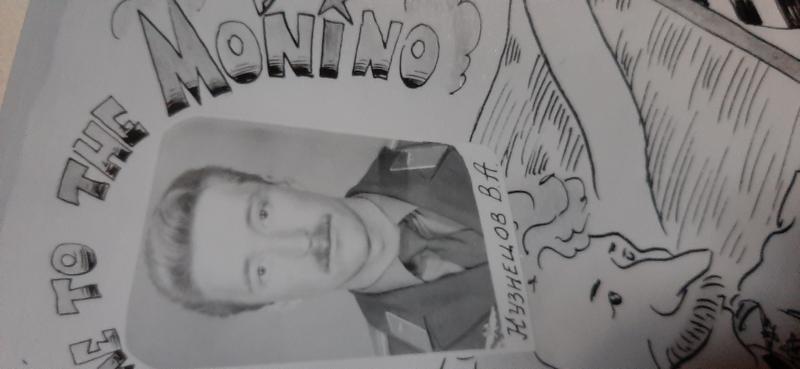 ME TO THE
MONINO
КУЗНЕЦОВ В.А.